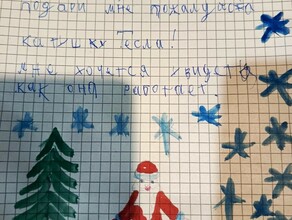 подари мне пожалуйста
катушку Тесла!
мне хочется увидеть
как она работает.